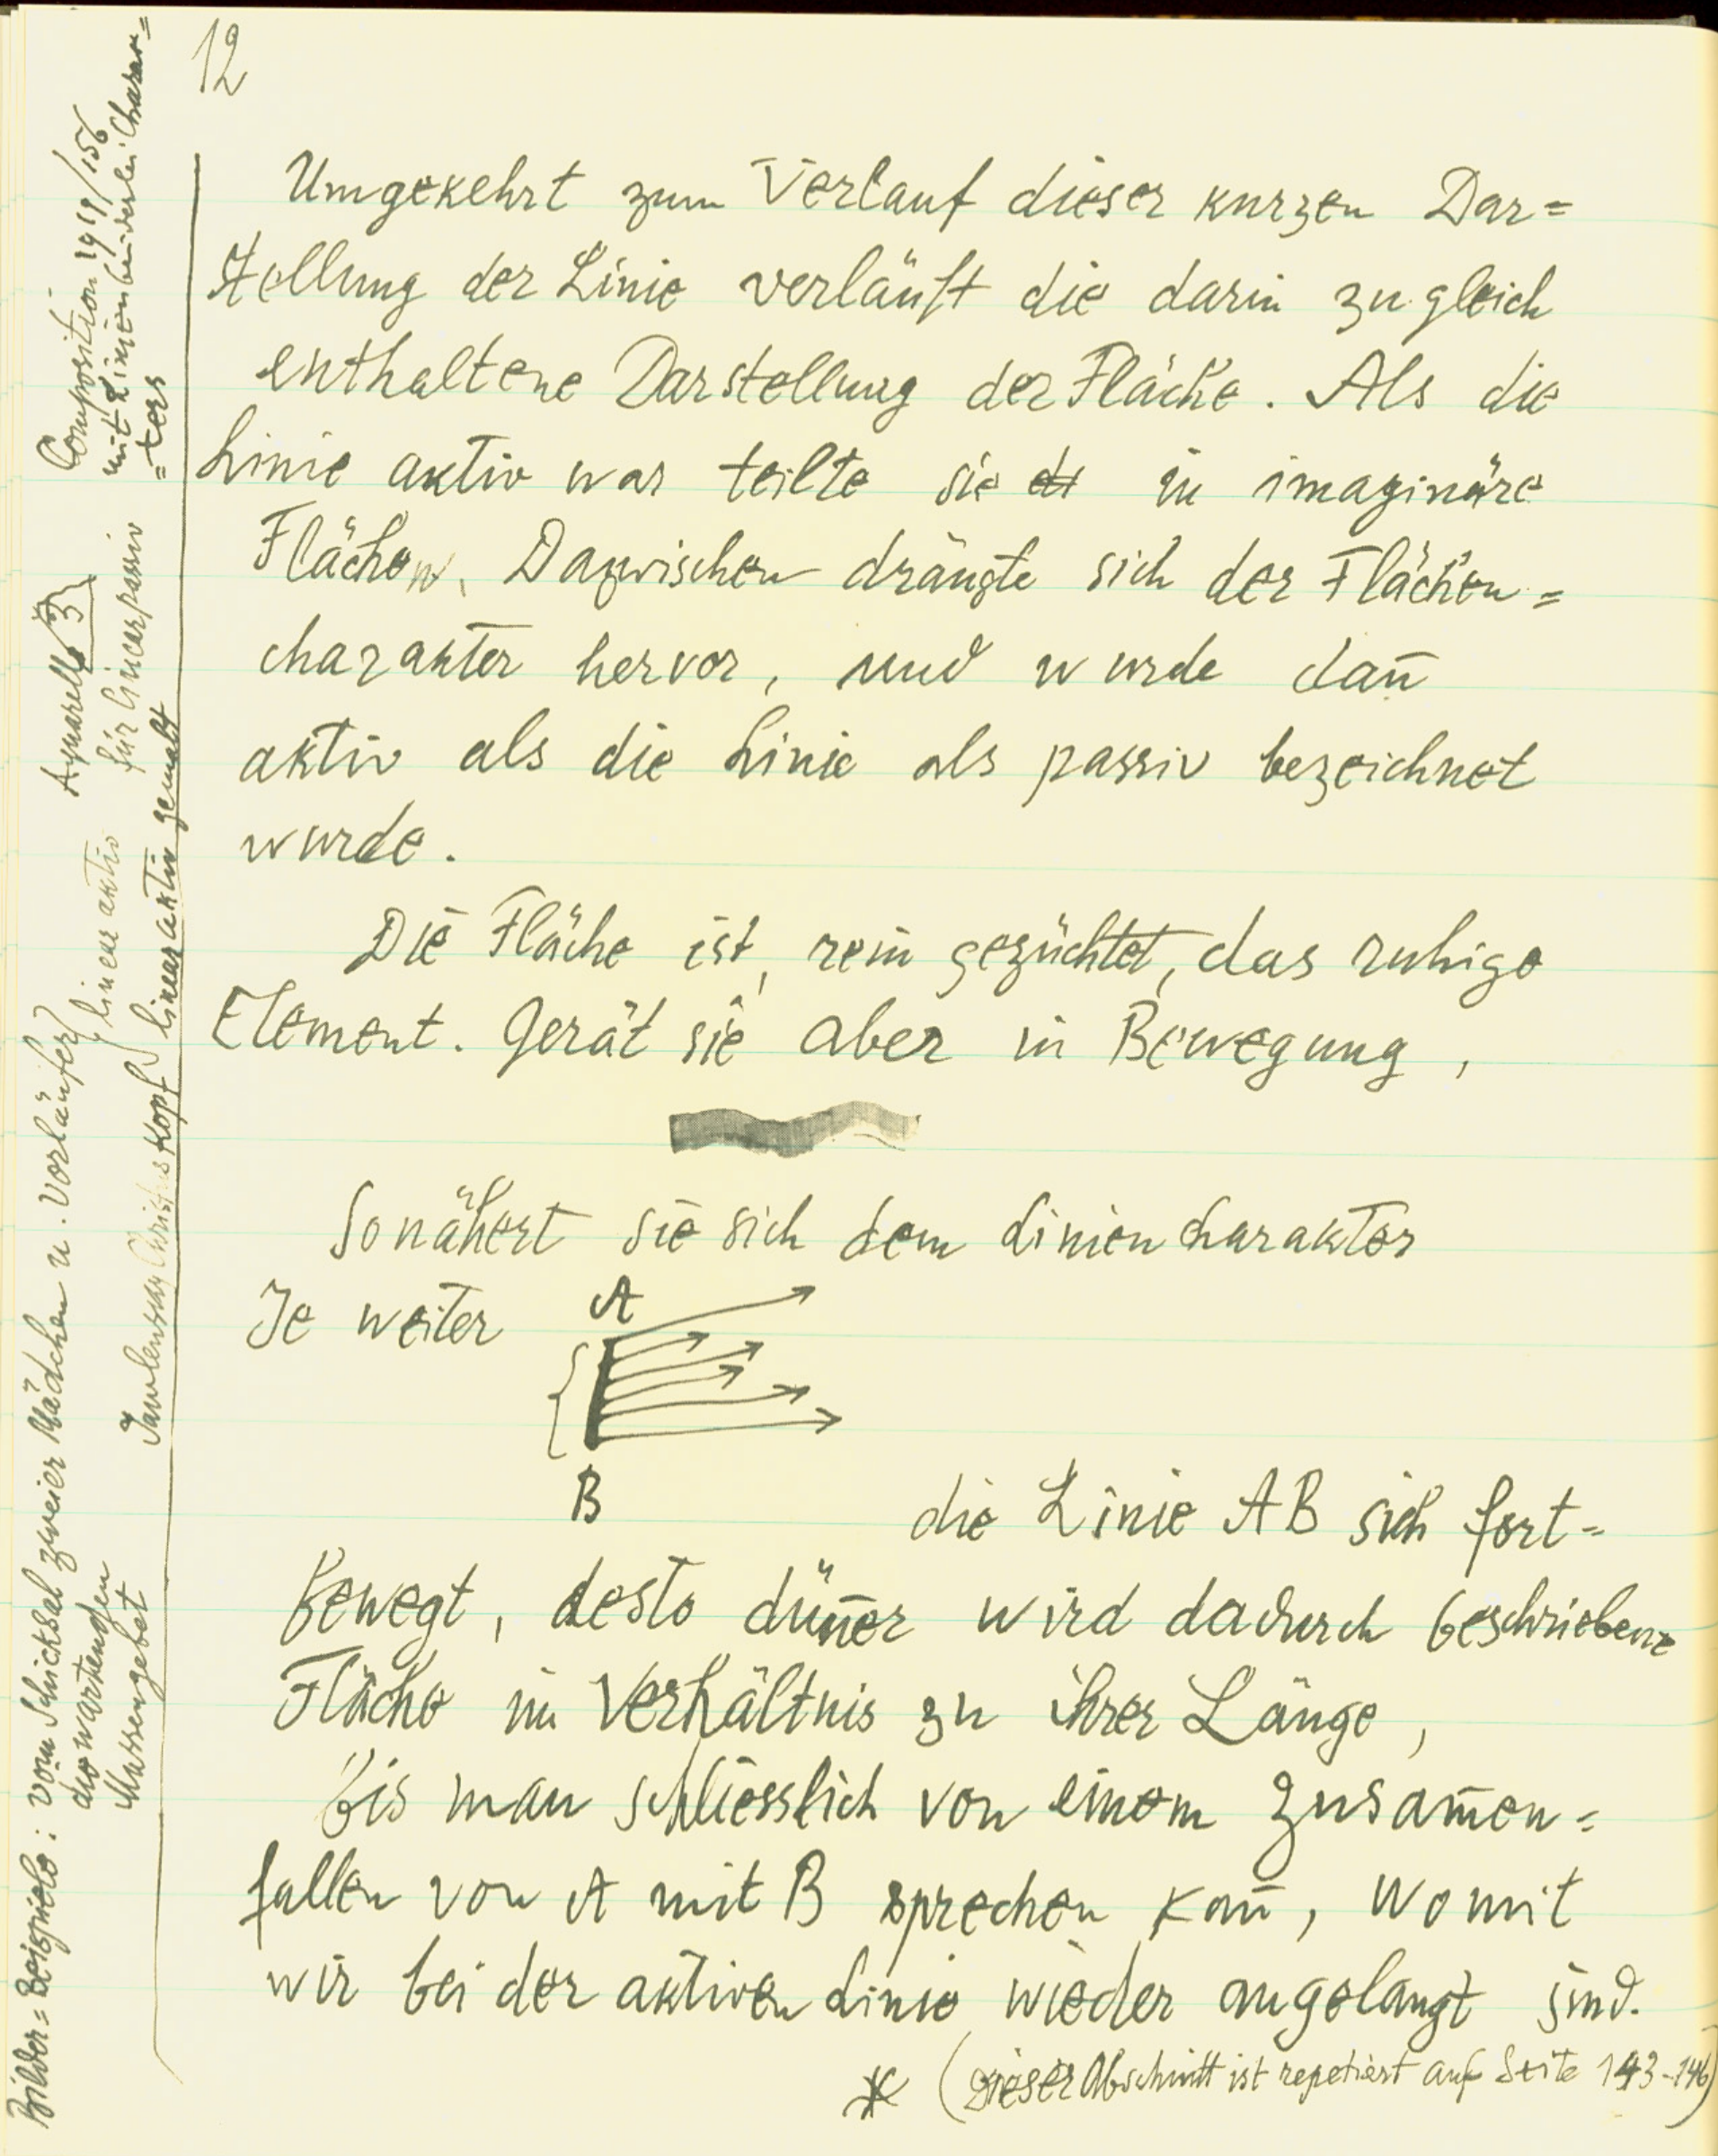 12
Umgekehrt zum Verlauf dieser kurzen Dar=
stellung der Linie verläuft die darin zugleich
enthaltene Darstellung der Fläche. Als die
Linie aktiv war teilte sie in imaginäre
Flächen. Dazwischen drängte sich der Flächen=
charakter hervor, und wurde dan̅
aktiv als die Linie als passiv bezeichnet
wurde.
Die Fläche ist, rein gezüchtet, das ruhige
Element. Gerät sie aber in Bewegung,
So nähert sie sich dem Liniencharakter
Je weiter
A
B
die Linie AB sich fort=
bewegt, desto dün̅er wird dadurch beschriebene
Fläche im Verhältnis zu ihrer Länge,
bis man schliesslich von einem Zusam̅en=
fallen von A mit B sprechen kan̅, womit
wir bei der aktiven Linie wieder angelangt sind.
* (Dieser Abschnitt ist repetiert auf Seite 143-146)
Bilder=Beispiele: vom Schicksal zweier Mädchen u. Vorläufer} linear aktiv
die wartenden
Massengebet
Jawlensky Christuskopf} linear aktiv gemalt
Aquarell 3}
für linear passiv
Composition 1919/156
mit Linien beiderlei Charak=
=ters